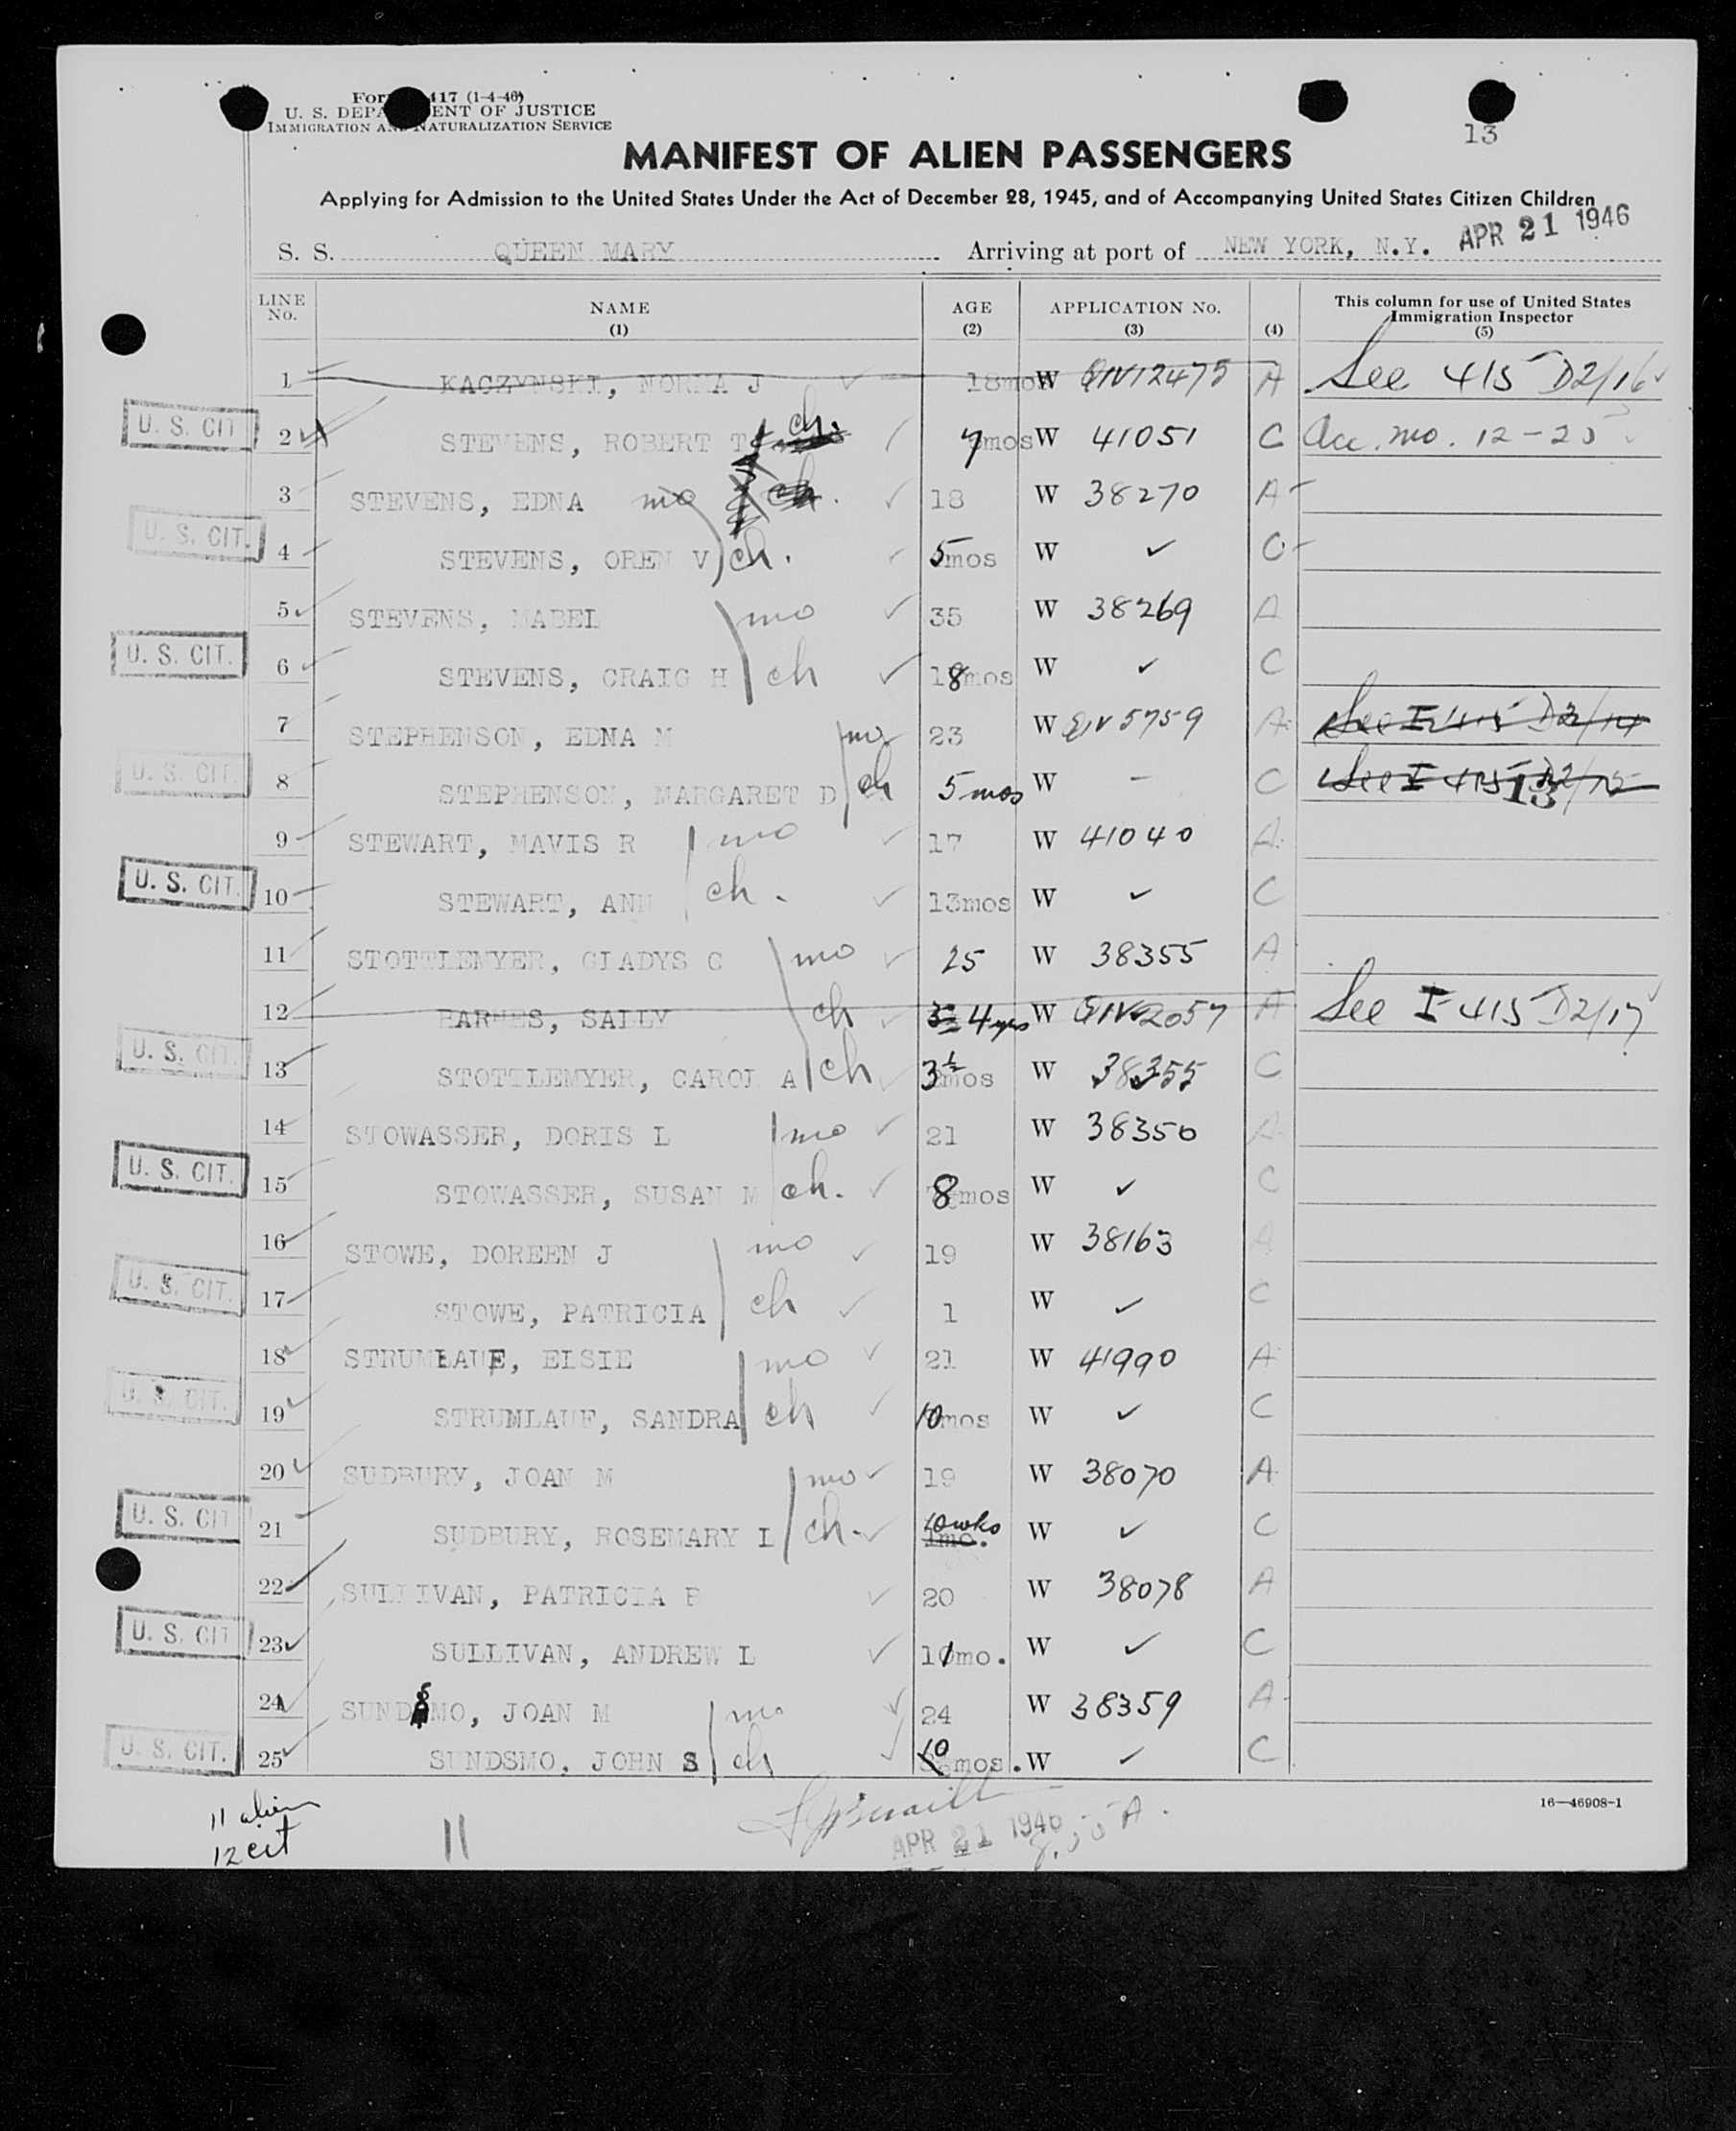 Form 417 (1-4-46)
U. S. DEPARTMENT OF JUSTICE
IMMIGRATION AND NATURALIZATION SERVICE
13
MANIFEST OF ALIEN PASSENGERS
Applying for Admission to the United States Under the Act of December 28, 1945, and of Accompanying United States Citizen Children
S. S. QUEEN MARY Arriving at port of NEW YORK, N.Y. APR 21 1946
LINE No. NAME (1) AGE (2) APPLICATION No. (3) (4) This column for use of United States Immigration Inspector (5)
1 KACZYNSKI, NORMA J 18mos W QIV12475 A See 415 D2/16
U. S. CIT 2 STEVENS, ROBERT T ch. 7mos W 41051 C Acc. mo. 12-25
3 STEVENS, EDNA mo ch. 18 W 38270 A
U. S. CIT. 4 STEVENS, OREN V ch. 5mos W ✓ C
5 STEVENS, MABEL mo 35 W 38269 A
U. S. CIT. 6 STEVENS, CRAIG H ch 18mos W ✓ C
7 STEPHENSON, EDNA M mo 23 W QIV 5759 A See I 415 D2/14
U. S. CIT. 8 STEPHENSON, MARGARET D ch 5 mos W - C See I 415 D2/15 13
9 STEWART, MAVIS R mo 17 W 41040 A
U. S. CIT. 10 STEWART, ANN ch. 13mos W ✓ C
11 STOTTLEMYER, GLADYS C mo 25 W 38355 A
12 BARNES, SALLY ch 3 4 yrs W QIV2057 A See I 415 D2/17
U. S. CIT. 13 STOTTLEMYER, CAROL A ch 3½mos W 38355 C
14 STOWASSER, DORIS L mo 21 W 38350 A
U. S. CIT. 15 STOWASSER, SUSAN M ch. 8mos W ✓ C
16 STOWE, DOREEN J mo 19 W 38163 A
U. S. CIT. 17 STOWE, PATRICIA ch 1 W ✓ C
18 STRUMLAUF, ELSIE mo 21 W 41990 A
U. S. CIT. 19 STRUMLAUF, SANDRA ch 10mos W ✓ C
20 SUDBURY, JOAN M mo 19 W 38070 A
U. S. CIT 21 SUDBURY, ROSEMARY L ch. 10wks 1mo. W ✓ C
22 SULLIVAN, PATRICIA P 20 W 38078 A
U. S. CIT 23 SULLIVAN, ANDREW L 11mo. W ✓ C
24 SUNDSMO, JOAN M mo 24 W 38359 A
U. S. CIT. 25 SUNDSMO, JOHN S ch 10 mos. W ✓ C
16—46908-1
11 alien
12 cit
11
APR 21 1946
A.